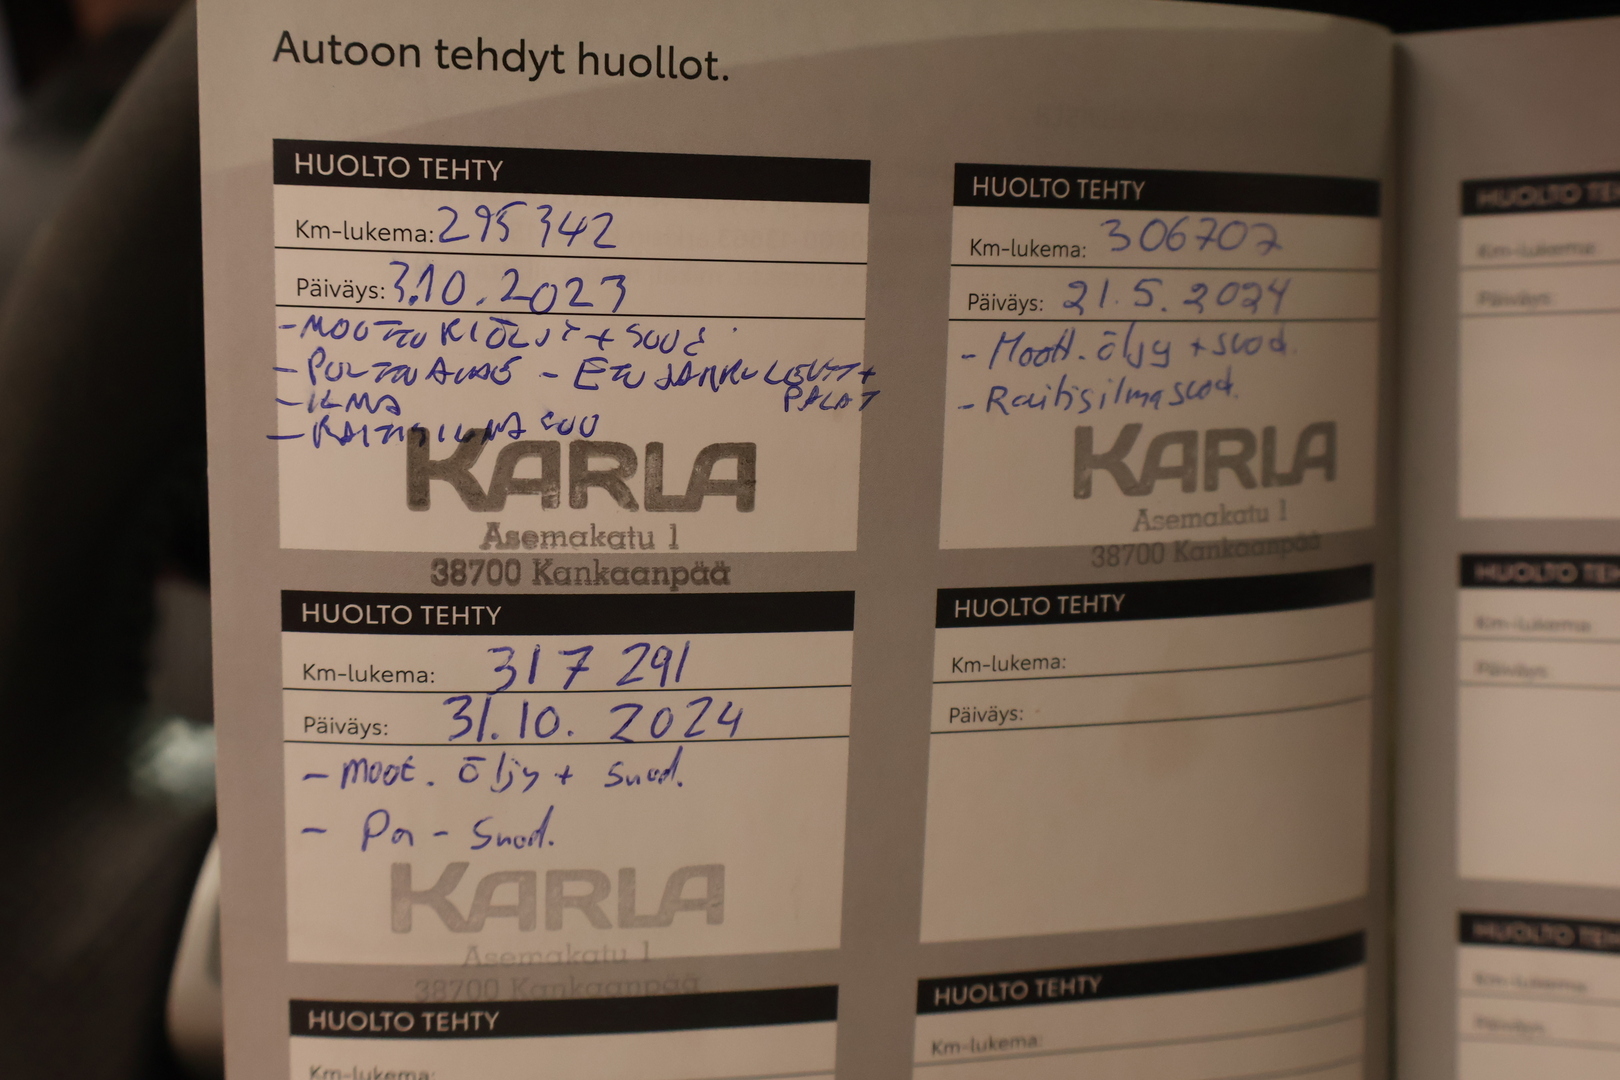 Autoon tehdyt huollot.
HUOLTO TEHTY
Km-lukema: 295342
Päiväys: 3.10.2023
- MOOTTORIÖLJY + SUOD
- POLTTOAINE - ETU JARRU LEVYT +
PALAT
- ILMA
- RAITISILMA SUO
KARLA
Asemakatu 1
38700 Kankaanpää
HUOLTO TEHTY
Km-lukema: 306707
Päiväys: 21.5.2024
- Moott. öljy + suod.
- Raitisilmasuod.
KARLA
Asemakatu 1
38700 Kankaanpää
HUOLTO TEHTY
Km-lukema: 317 291
Päiväys: 31.10.2024
- Moot. öljy + suod.
- Pa - Suod.
KARLA
Asemakatu 1
38700 Kankaanpää
HUOLTO TEHTY
Km-lukema:
Päiväys:
HUOLTO TEHTY
Km-lukema:
HUOLTO TEHTY
Km-lukema:
HUOLTO TE
Km-lukema:
Päiväys:
HUOLTO TEH
Km-lukema:
Päiväys:
HUOLTO TEH
Km-lukema:
Päiväys: